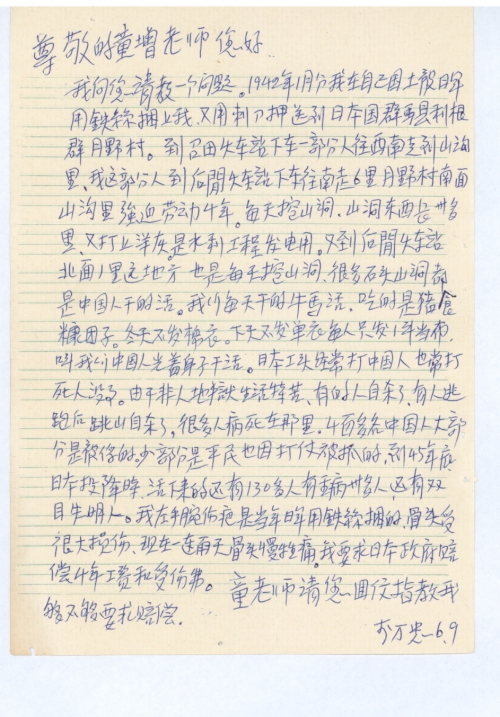 尊敬的童增老师您好
我向您请教一个问题。1942年1月份我在自己国土被日军
用鉄絲捆上我、又用刺刀押送到日本国群馬县利根
群月野村。到召田火车站下车一部分人往西南走到山沟
里、我这部分人到后閒火车站下车往南走6里月野村南面
山沟里強迫劳动4年。每天挖山洞、山洞东西長卅多
里、又打上洋灰。是水利工程发电用。又到后閒火车站
北面1里远地方也是每天挖山洞、很多石头山洞都
是中国人干的活。我们每天干的牛馬活、吃的是猪食
糠团子。冬天不发棉衣。下天不发单衣每人只发1块当布,
叫我们中国人光着身子干活。日本工头经常打中国人也常打
死人没了。由于非人地獄生活特苦、有的人自杀了、有人逃
跑后跳山自杀了,很多人病死在那里。4百多名中国人大部
分是被俘的。少部分是平民也因打仗被抓的,到45年底
日本投降時、活下来的还有130多人有重病卅多人还有双
目失明人。我左手腕伤疤是当年日军用鉄絲捆的、骨头受
很大损伤、现在一連雨天骨头慢性痛。我要求日本政府赔
偿4年工费和受伤费。童老师请您回信指教我
够不够要扎赔偿.
6.9